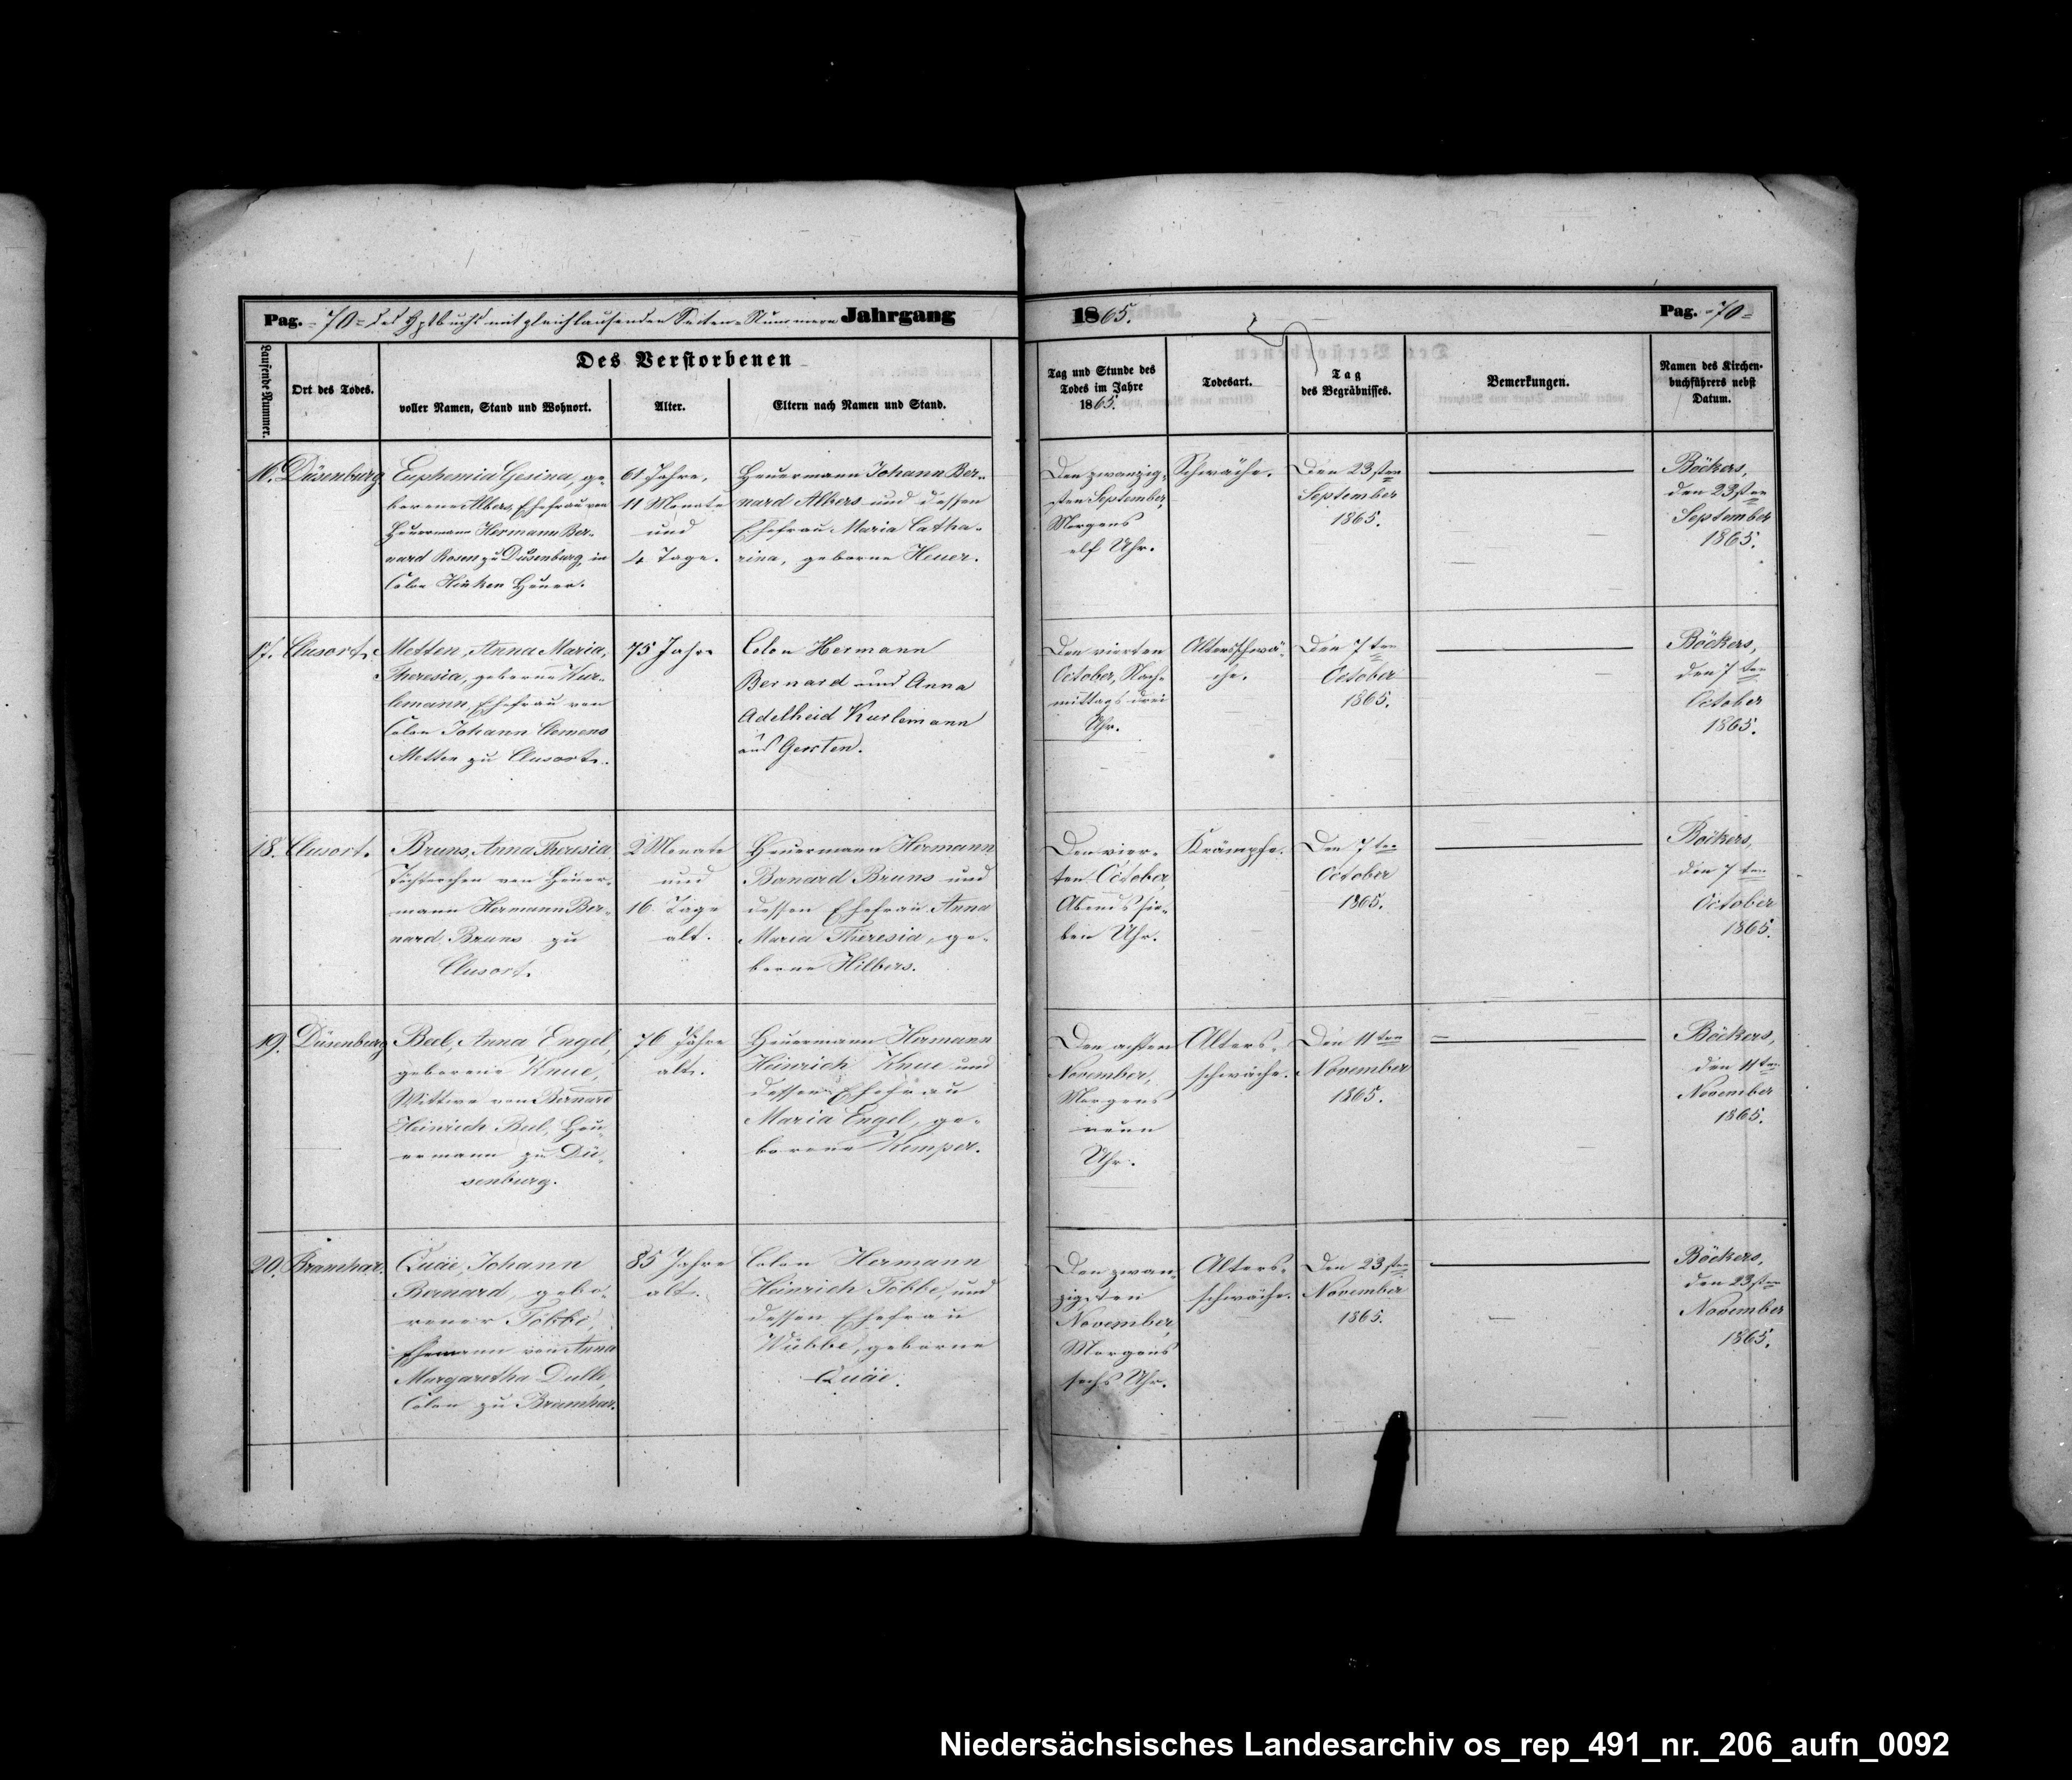 Pag. =70= des Hptbuchs mit gleichlaufenden Seiten-Nummern Jahrgang
1865.
Pag. =70=
Laufende Nummer.
Ort des Todes.
Des Verstorbenen
voller Namen, Stand und Wohnort.
Alter.
Eltern nach Namen und Stand.
Tag und Stunde des
Todes im Jahre
1865.
Todesart.
Tag
des Begräbnisses.
Bemerkungen.
Namen des Kirchen-
buchführers nebst
Datum.
16.
Düsenburg
Euphemia Gesina, ge-
borene Albers, Ehefrau von
Heuermann Hermann Ber-
nard Rosen zu Düsenburg, in
Colon Heuer.
61 Jahre,
11 Monate
und
4 Tage.
Heuermann Johann Ber-
nard Albers und dessen
Ehefrau Maria Catha-
rina, geborne Heuer.
Den zwanzig-
sten September,
Morgens
elf Uhr.
Schwäche.
Den 23sten
September
1865.
Böckers,
den 23sten
September
1865.
17.
Clusorth.
Metten, Anna Maria,
Theresia, geborene Kur-
lemann, Ehefrau von
Colon Johann Clemens
Metten zu Clusorth.
75 Jahre
Colon Hermann
Bernard und Anna
Adelheid Kurlemann
aus Gersten.
Den vierten
October, Nach-
mittags drei
Uhr.
Altersschwä-
che.
Den 7ten
October
1865.
Böckers,
den 7ten
October
1865.
18.
Clusort.
Bruns, Anna Theresia
Töchterchen von Heuer-
mann Hermann Ber-
nard Bruns zu
Clusort.
2 Monate
und
16 Tage
alt.
Heuermann Hermann
Bernard Bruns und
dessen Ehefrau Anna
Maria Theresia, ge-
borne Hilbers.
Den vier-
ten October,
Abends sie-
ben Uhr.
Krämpfe.
Den 7ten
October
1865.
Böckers,
den 7ten
October
1865.
19.
Düsenburg
Beel, Anna Engel,
geborene Knue,
Wittwe von Bernard
Heinrich Beel, Heu-
ermann zu Dü-
senburg.
76 Jahre
alt.
Heuermann Hermann
Heinrich Knue und
dessen Ehefrau
Maria Engel, ge-
borene Kemper.
Den achten
November,
Morgens
neun
Uhr.
Alters-
schwäche.
Den 11ten
November
1865.
Böckers,
den 11ten
November
1865.
20.
Bramhar.
Quäe, Johann
Bernard, gebo-
rener Többe,
Ehemann von Anna
Margaretha Dulle,
Colon zu Bramhar.
85 Jahre
alt.
Colon Hermann
Heinrich Többe, und
dessen Ehefrau
Wübbe, geborne
Quäe.
Den zwan-
zigsten
November,
Morgens
sechs Uhr.
Alters-
schwäche.
Den 23sten
November
1865.
Böckers,
den 23sten
November
1865.
Niedersächsisches Landesarchiv os_rep_491_nr._206_aufn_0092